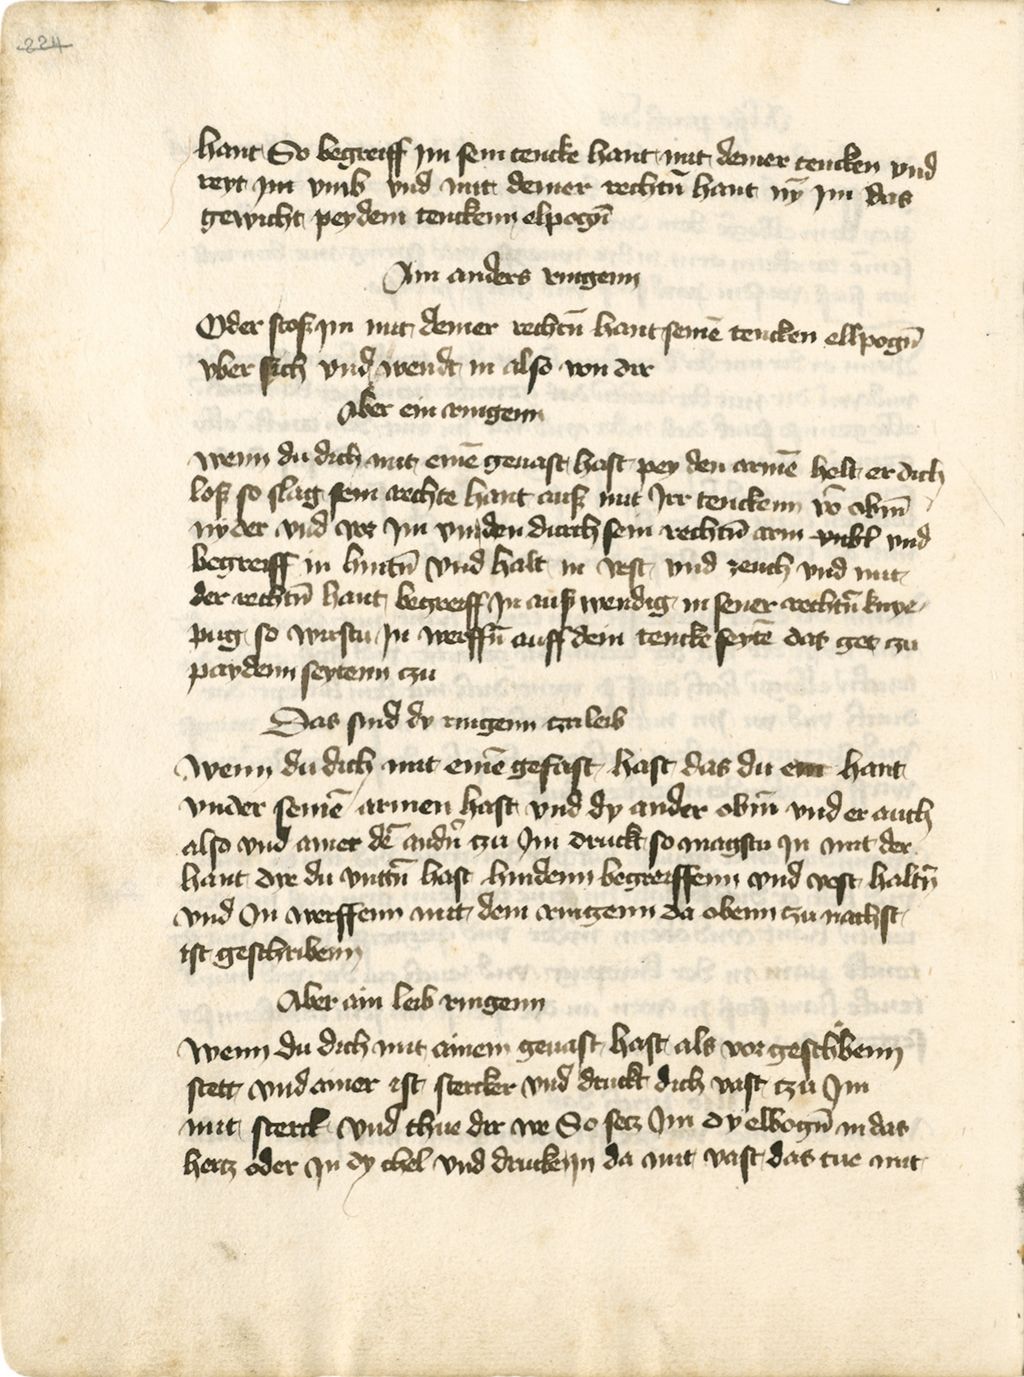 224
hant So begreiff Im sein tencke hant mit deiner tencken vnd
reyt Im vmb vnd mit deiner rechtn̄ hant nȳ Im das
gewicht pey dem tenckenn elpogn̄
Ain anders ringenn
Oder stoß Im mit deiner rechtn̄ hant seinē tencken ellpogn̄
vber sich vnd wendt in also von dir
Aber ein ringenn
Wenn du dich mit einē geuast hast pey den armē helt er dich
loß so slag sein rechte hant auß mit Irr tenckenn vō obn̄
nyder vnd var Im vnden durch sein rechtn̄ arm vnd
begreiff in hintn̄ vnd halt in vest vnd zeuch vnd mit
der rechtn̄ hant begreiff In auß wendig in sener rechtn̄ knye
pug so wirstu In werffn̄ auff dein tencke seytē das get zu
paydenn seytenn czu
Das sind dy ringenn czu leib
Wenn du dich mit einē gefast hast das du ein hant
vnder seinē armen hast vnd dy ander obn̄ vnd er auch
also vnd ainer dē andn̄ zu Im druck so magstu In mit der
hant die du vntn̄ hast hindenn begreiffenn vnd vest haltn̄
vnd In werffenn mit dem ringenn da obenn czu nachst
ist geschribenn
Aber ain leib ringenn
Wenn du dich mit ainem geuast hast als vor geschribenn
stett vnd ainer ist stercker vnd druckt dich vast czu Im
mit sterck vnd thue dir we So secz Im dy elbogn̄ in das
hertz oder In dy chel vnd druck In da mit vast das tue mit